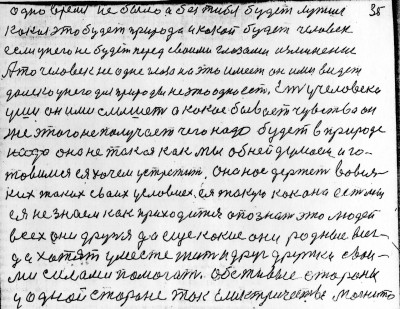 одно время не было а без тибя будет лутше 38
какая это будет природа и какой будет человек
если у него не будет перед своими глазами изминение
А то человек не одне глаза на это имеет он ими видет
далеко у него для природы не это одно есть. Есть у человека
уши он ими слышет а какое бывает чувство он
же этого не получает чего надо будет в природе
надо она не такая как мы об ней думаем и го-
товимся ея хочем устретит. Она нас держет во всех
таких своих условиях, ея такую как она есть мы
ея не знаем как приходится опознат это людей
всех они друзя да еще какие они родные всег-
да хотят уместе жит и друг дружки свои-
ми силами помогат. обстивые стораны
у одной стороне ток електричества магнито